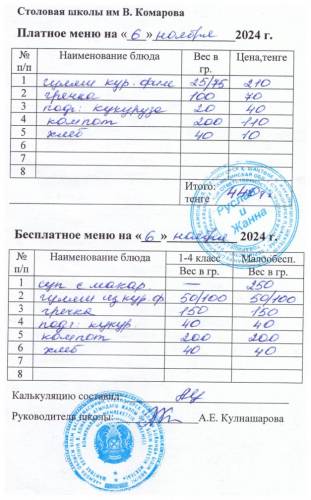 Столовая школы им В. Комарова
Платное меню на « 6 » ноября 2024 г.
№ п/п Наименование блюда Вес в гр. Цена,тенге
1 гуляш кур. филе 25/75 210
2 гречка 100 70
3 подг. кукуруза 20 40
4 компот 200 110
5 хлеб 40 10
6
7
8
Итого: тенге 440 г.
Руслан и Жанна
Бесплатное меню на « 6 » ноября 2024 г.
№ п/п Наименование блюда 1-4 класс Малообесп.
Вес в гр. Вес в гр.
1 суп с макар — 250
2 гуляш из кур.ф 50/100 50/100
3 гречка 150 150
4 подг. кукур 40 40
5 компот 200 200
6 хлеб 40 40
7
8
Калькуляцию составил:
Руководитель школы: А.Е. Кулнашарова